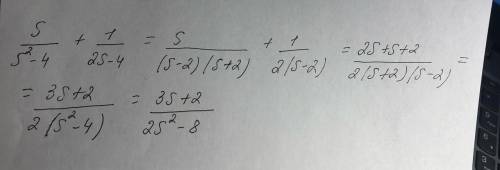 S/(S²-4) + 1/(2S-4) = S/((S-2)(S+2)) + 1/(2(S-2)) = (2S+S+2)/(2(S+2)(S-2)) =
= (3S+2)/(2(S²-4)) = (3S+2)/(2S²-8)